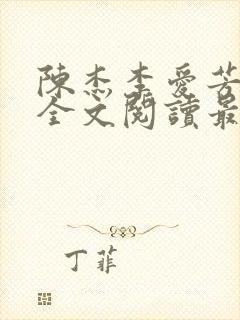 陳杰李愛芳
全文閱讀最
丁菲